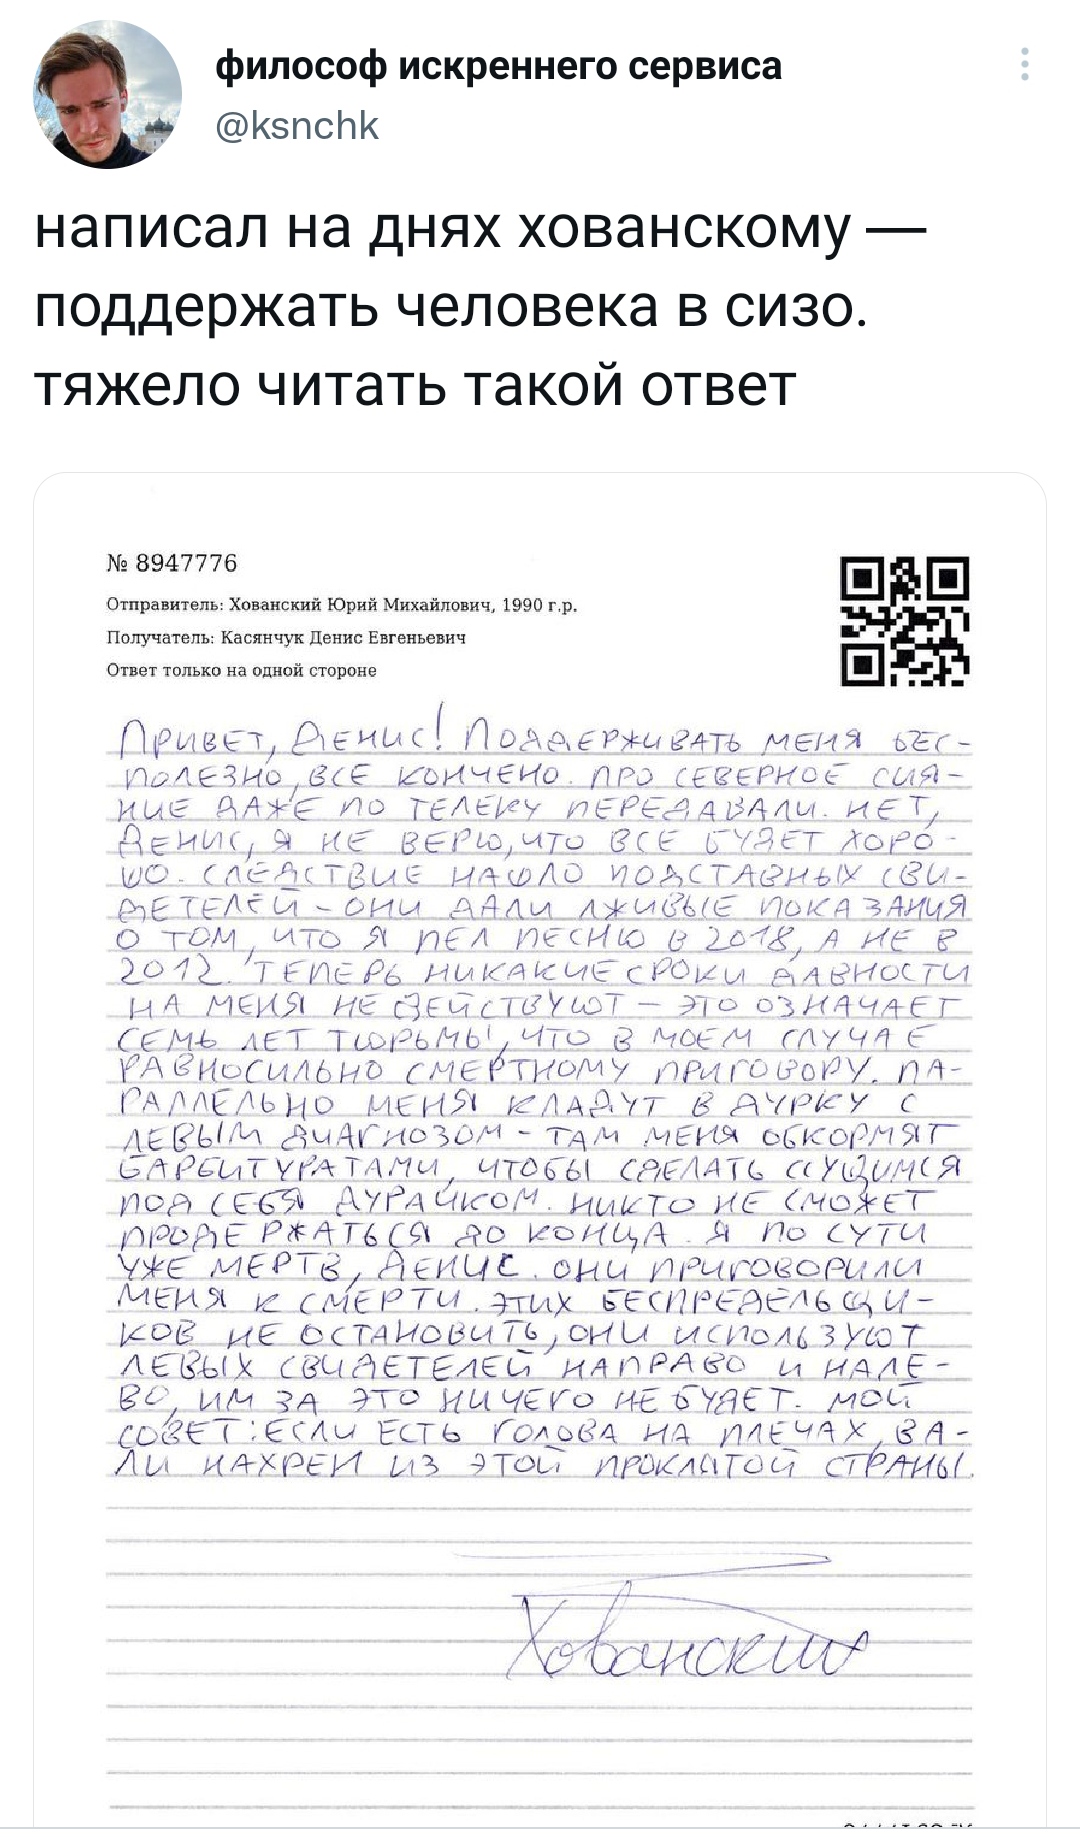 философ искреннего сервиса
@ksnchk
написал на днях хованскому —
поддержать человека в сизо.
тяжело читать такой ответ
№ 8947776
Отправитель: Хованский Юрий Михайлович, 1990 г.р.
Получатель: Касянчук Денис Евгеньевич
Ответ только на одной стороне
Привет, Денис! Поддерживать меня бес-
полезно, всё кончено. Про северное сия-
ние даже по телеку передавали. Нет,
Денис, я не верю, что всё будет хоро-
шо. Следствие нашло подставных сви-
детелей - они дали лживые показания
о том, что я пел песню в 2018, а не в
2012. Теперь никакие сроки давности
на меня не действуют - это означает
семь лет тюрьмы, что в моем случае
равносильно смертному приговору. Па-
раллельно меня кладут в дурку с
левым диагнозом - там меня обкормят
барбитуратами, чтобы сделать ссущимся
под себя дурачком. Никто не сможет
продержаться до конца. Я по сути
уже мертв, Денис. Они приговорили
меня к смерти. Этих беспредельщи-
ков не остановить, они используют
левых свидетелей направо и нале-
во, им за это ничего не будет. Мой
совет: если есть голова на плечах, ва-
ли нахрен из этой проклятой страны.
Хованский